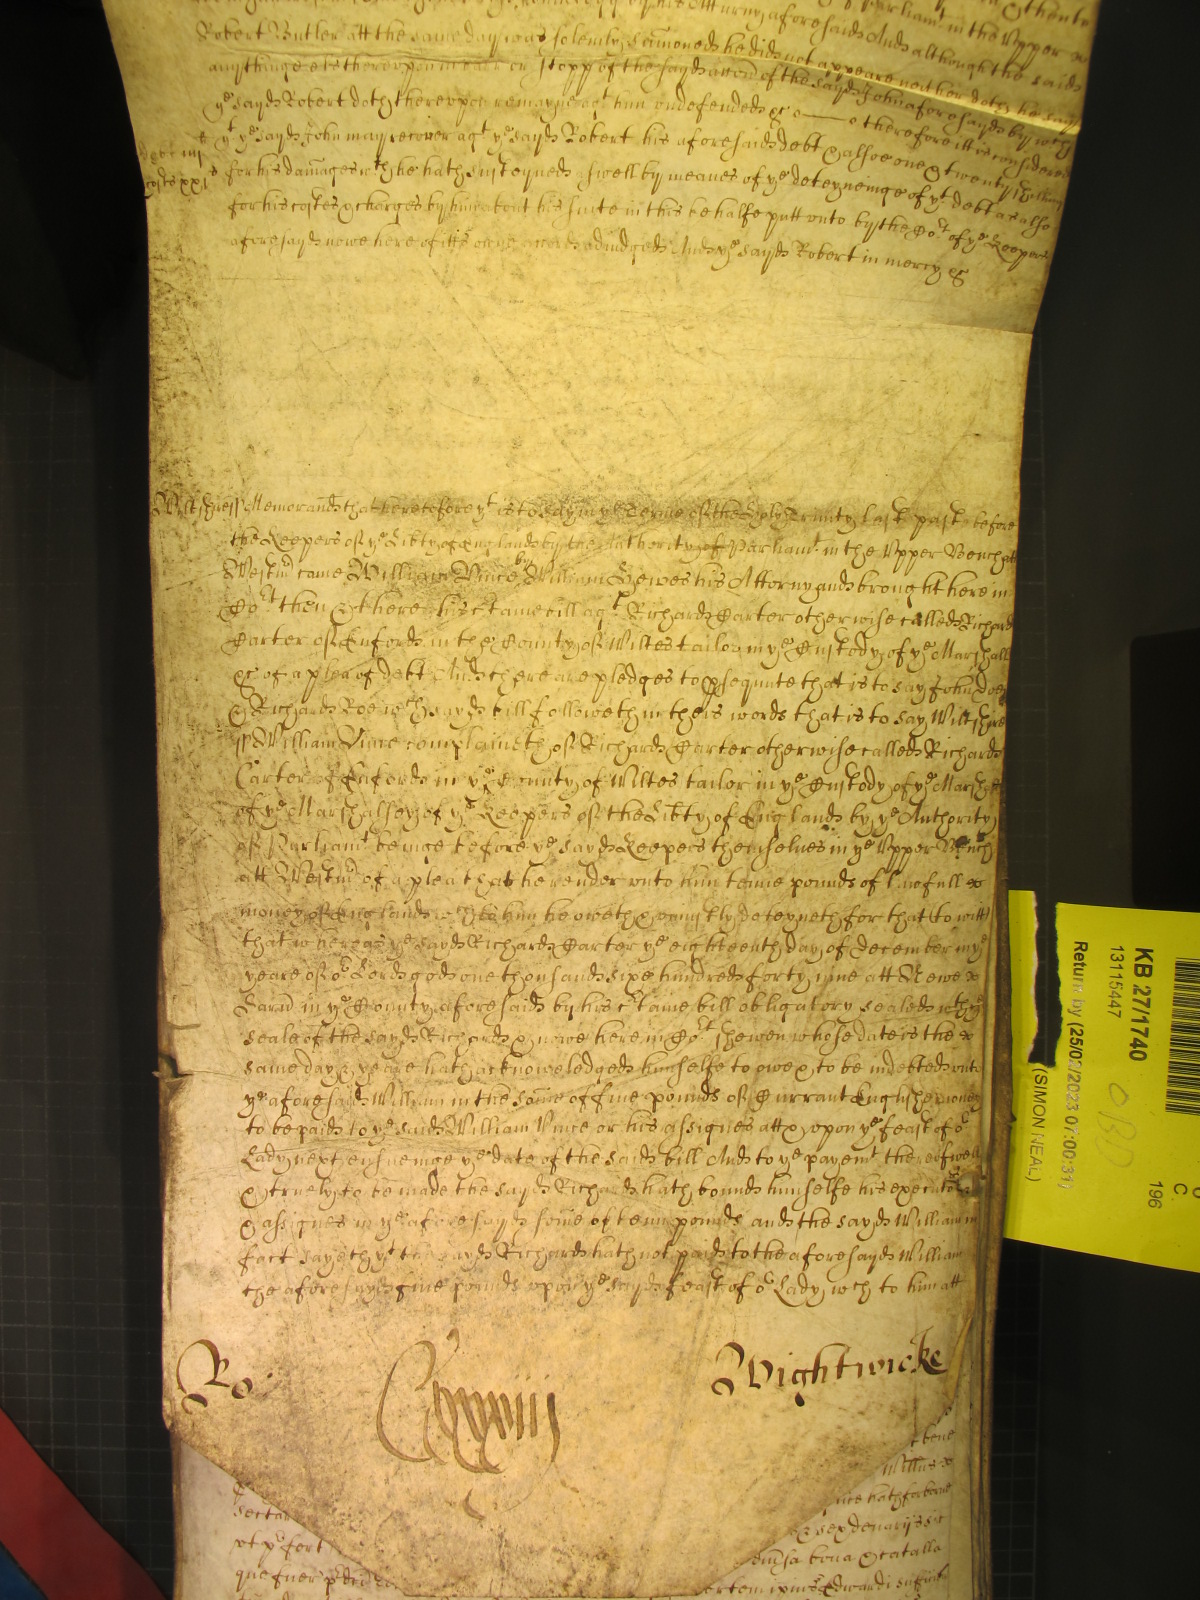 Robert Butler att the same day was solemly sumoned he did not appeare neither doth he say
anythinge els thereupon in barr or stopp of the sayd accon of the sayd John aforesayd by wch
ye sayd Robert doth thereupon remayne agt him undefended &c o—o therefore itt is considered
yt ye sayd John may recover agt ye sayd Robert his aforesaid debt & alsoe one & twenty
for his damages wch he hath susteyned aswell by meanes of ye deteyneinge of yt debt as also
for his costes & charges by him about his suite in this behalfe putt unto by the Cort of ye Keepers
aforesayd nowe here of itts owne accord adiudged And ye sayd Robert in mercy &c
Wiltshire ss Memorand that heretofore yt is to say in ye Terme of the Holy Trinity last past before
the Keepers of ye Libty of England by the Authority of Parliamt in the Upper Bench att
Westmr came William Vince by William Hewes his Attorny and brought here in
Cort then & there his ctaine bill agt Richard Carter otherwise called Richard
Carter of Enford in the County of Wiltes tailor in ye Custody of ye Marshall
&c of a plea of debt And there are pledges to psequute that is to say John Doe
& Richard Roe wch sayd bill followeth in theis words that is to say Wiltshire
ss William Vince complaineth of Richard Carter otherwise called Richard
Carter of Enford in ye County of Wiltes tailor in ye Custody of ye Marshall
of ye Marshalsey of ye Keepers of the Libty of England by ye Authority
of Parliamt beinge before ye sayd Keepers themselves in ye Upper Bench
att Westmr of a plea that he render unto him tenne pounds of lawfull
money of England wch to him he oweth & uniustly deteyneth for that (to witt)
that whereas ye sayd Richard Carter ye eighteenth day of December in ye
yeare of or Lord god one thousand sixe hundred forty nine att Newe
Sarum in ye County aforesaid by his ctaine bill obligatory sealed wth ye
seale of the sayd Richard & nowe here in Cort shewen whose date is the
same day & yeare hath acknowledged himselfe to owe & to be indebted unto
ye aforesaid William in the some of five pounds of Currant English money
to be paid to ye said William Vince or his assignes att & upon ye feast of or
Lady next ensueinge ye date of the said bill And to ye paymt thereof well
& truely to be made the sayd Richard hath bound himselfe his executors
& assignes in ye aforesayd some of tenn pounds and the sayd William in
fact sayeth yt the sayd Richard hath not paid to the aforesayd William
the aforesayd five pounds upon ye sayd feast of or Lady wch to him att
Ro
Cxxxiiij
Wightwicke
sectar
ut p fert
que fuer
bona & catalla
KB 27/1740
13115447
Return by (25/02/2023 07:00:31)
(SIMON NEAL)
196
C